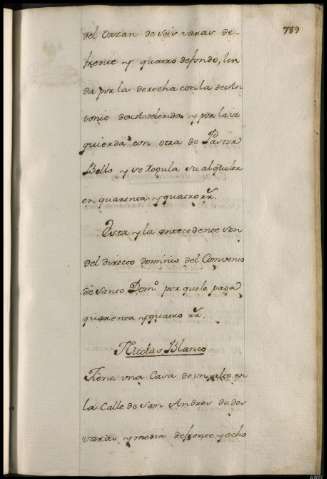 789
del Cazan de seis varas de
frente y quatro defondo, lin
da por la derecha con la de An
tonio y por la iz
quierda con otra de Pastor
Bello y se Regula su alquiler
en quarenta y quatro rr.
Esta y la antecedente son
del directo dominio del Convento
de Santo Domº por que le paga
quarenta y quatro rr.
Nicolas Blanco
Tiene una Casa de un alto en
la Calle de San Andres de dos
varas y media defrente y ocho